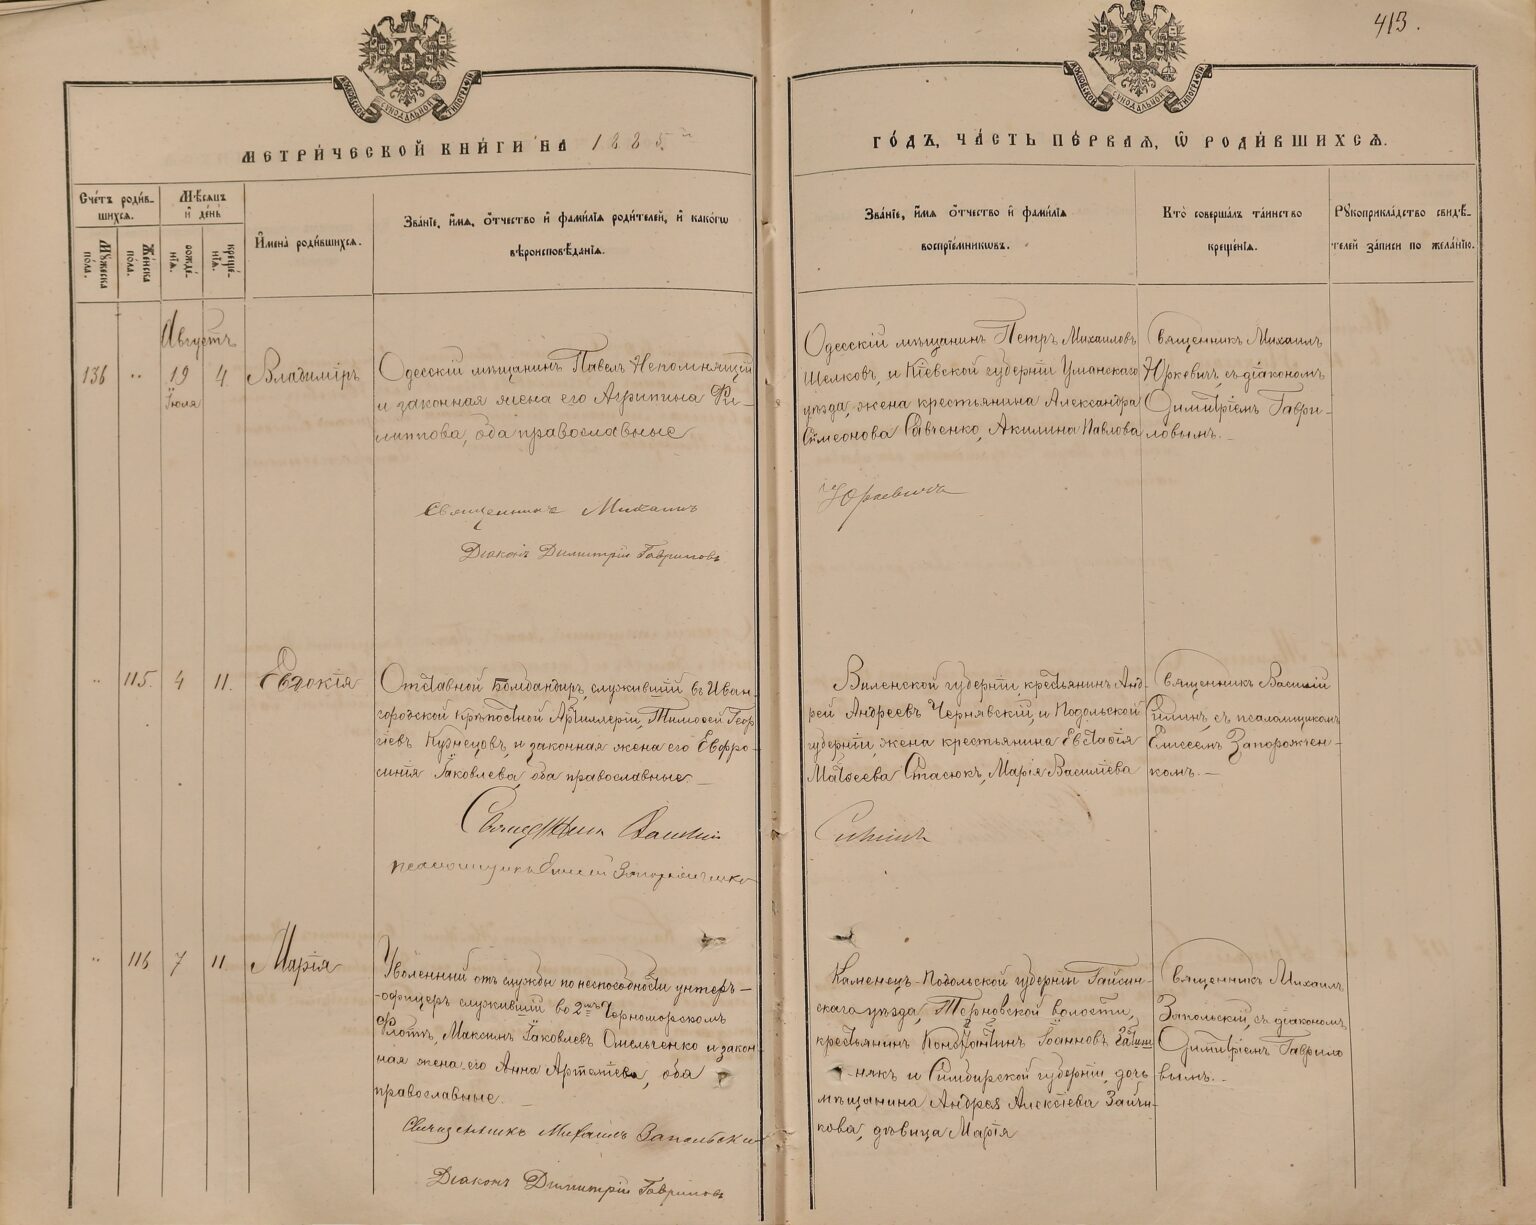 413.
МОСКОВСКОЙ СИНОДАЛЬНОЙ ТИПОГРАФІИ
МОСКОВСКОЙ СИНОДАЛЬНОЙ ТИПОГРАФІИ
МЕТРИ́ЧЕСКОЙ КНИ́ГИ НА 1885й
ГО́ДЪ, ЧА́СТЬ ПЕ́РВАЯ, Ѡ РОДИ́ВШИХСЯ.
Сче́тъ роди́в-
шихся.
Мѣ́сяцъ
и́ де́нь
Му́жеска по́ла.
Же́нска по́ла.
рожде́-
нія.
креще́-
нія.
И́мена роди́вшихся.
Зва́ніе, и́мя, о́тчество и́ фами́лія роди́телей, и́ како́гѡ
вѣроисповѣ́данія.
Зва́ніе, и́мя о́тчество и́ фами́лія
воспріе́мниковъ.
Кто̀ соверша́лъ та́инство
креще́нія.
Рꙋкоприкла́дство свидѣ́-
телей за́писи по жела́нію.
Августъ
136 " 19 4. Владиміръ
Іюля
Одесскій мѣщанинъ Павелъ Непомнящій
и законная жена его Агрипина Фи-
липпова, оба православные
Священникъ Михаилъ
Діаконъ Димитрій Гавриловъ
Одесскій мѣщанинъ Петръ Михаиловъ
Шелковъ, и Кіевской губерніи Уманскаго
уѣзда, жена крестьянина Александра
Симеонова Савченко, Акилина Павлова
Юркевичъ
Священникъ Михаилъ
Юркевичъ, съ діакономъ
Димитріемъ Гаври-
ловымъ. –
" 115. 4 11. Евдокія
Отставной бомбандиръ, служившій въ Иван-
городской Крѣпостной Артиллеріи, Тимоѳей Геор
гіевъ Кузнецовъ, и законная жена его Евфро-
синія Іаковлева, оба православные –
Священникъ Василій
псаломщикъ Елисей Запорожченко
Виленской губерніи, крестьянинъ Анд-
рей Андреевъ Чернявскій, и Подольской
губерніи, жена крестьянина Евстафія
Матвеева Стасюкъ, Марія Василіева
Силинъ
Священникъ Василій
Силинъ, съ псаломщикомъ
Елисеемъ Запорожчен-
комъ. –
" 116 7 11 Марія
Уволенный отъ службы по неспособности унтеръ–
-офицеръ служившій во 2мъ Черноморскомъ
Флотѣ, Максимъ Іаковлевъ Омельченко и закон-
ная жена его Анна Артеміева, оба
православные. –
Священникъ Михаилъ Запольскій
Діаконъ Димитрій Гавриловъ
Каменецъ-Подольской губерніи Гайсин-
скаго уѣзда, Терновской волости,
крестьянинъ Константинъ Іоанновъ
-някъ и Симбирской губерніи, дочь
мѣщанина Андрея Алексіева Зайчи-
кова, дѣвица Марія
Священникъ Михаилъ
Запольскій, съ діакономъ
Димитріемъ Гаврило
вымъ. –